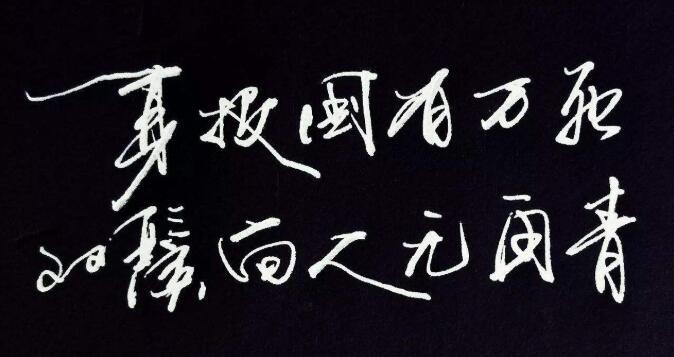 一身报国有万死
双鬓向人无再青